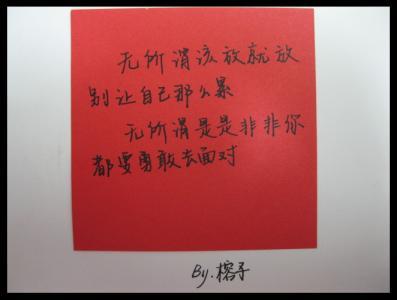 无所谓该放就放
别让自己那么累
无所谓是是非非你
都要勇敢去面对
By.榕子